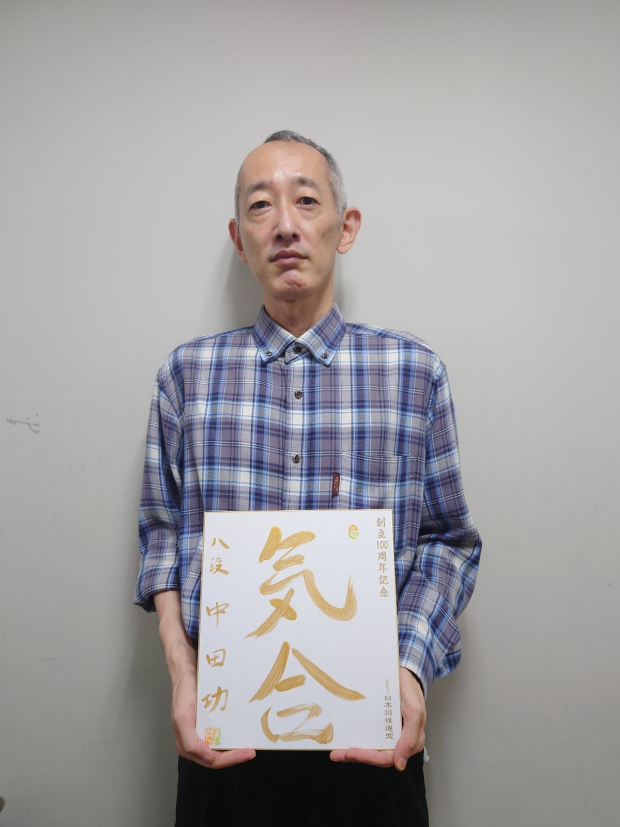 創立100周年記念
気合
八段 中田功
日本将棋連盟